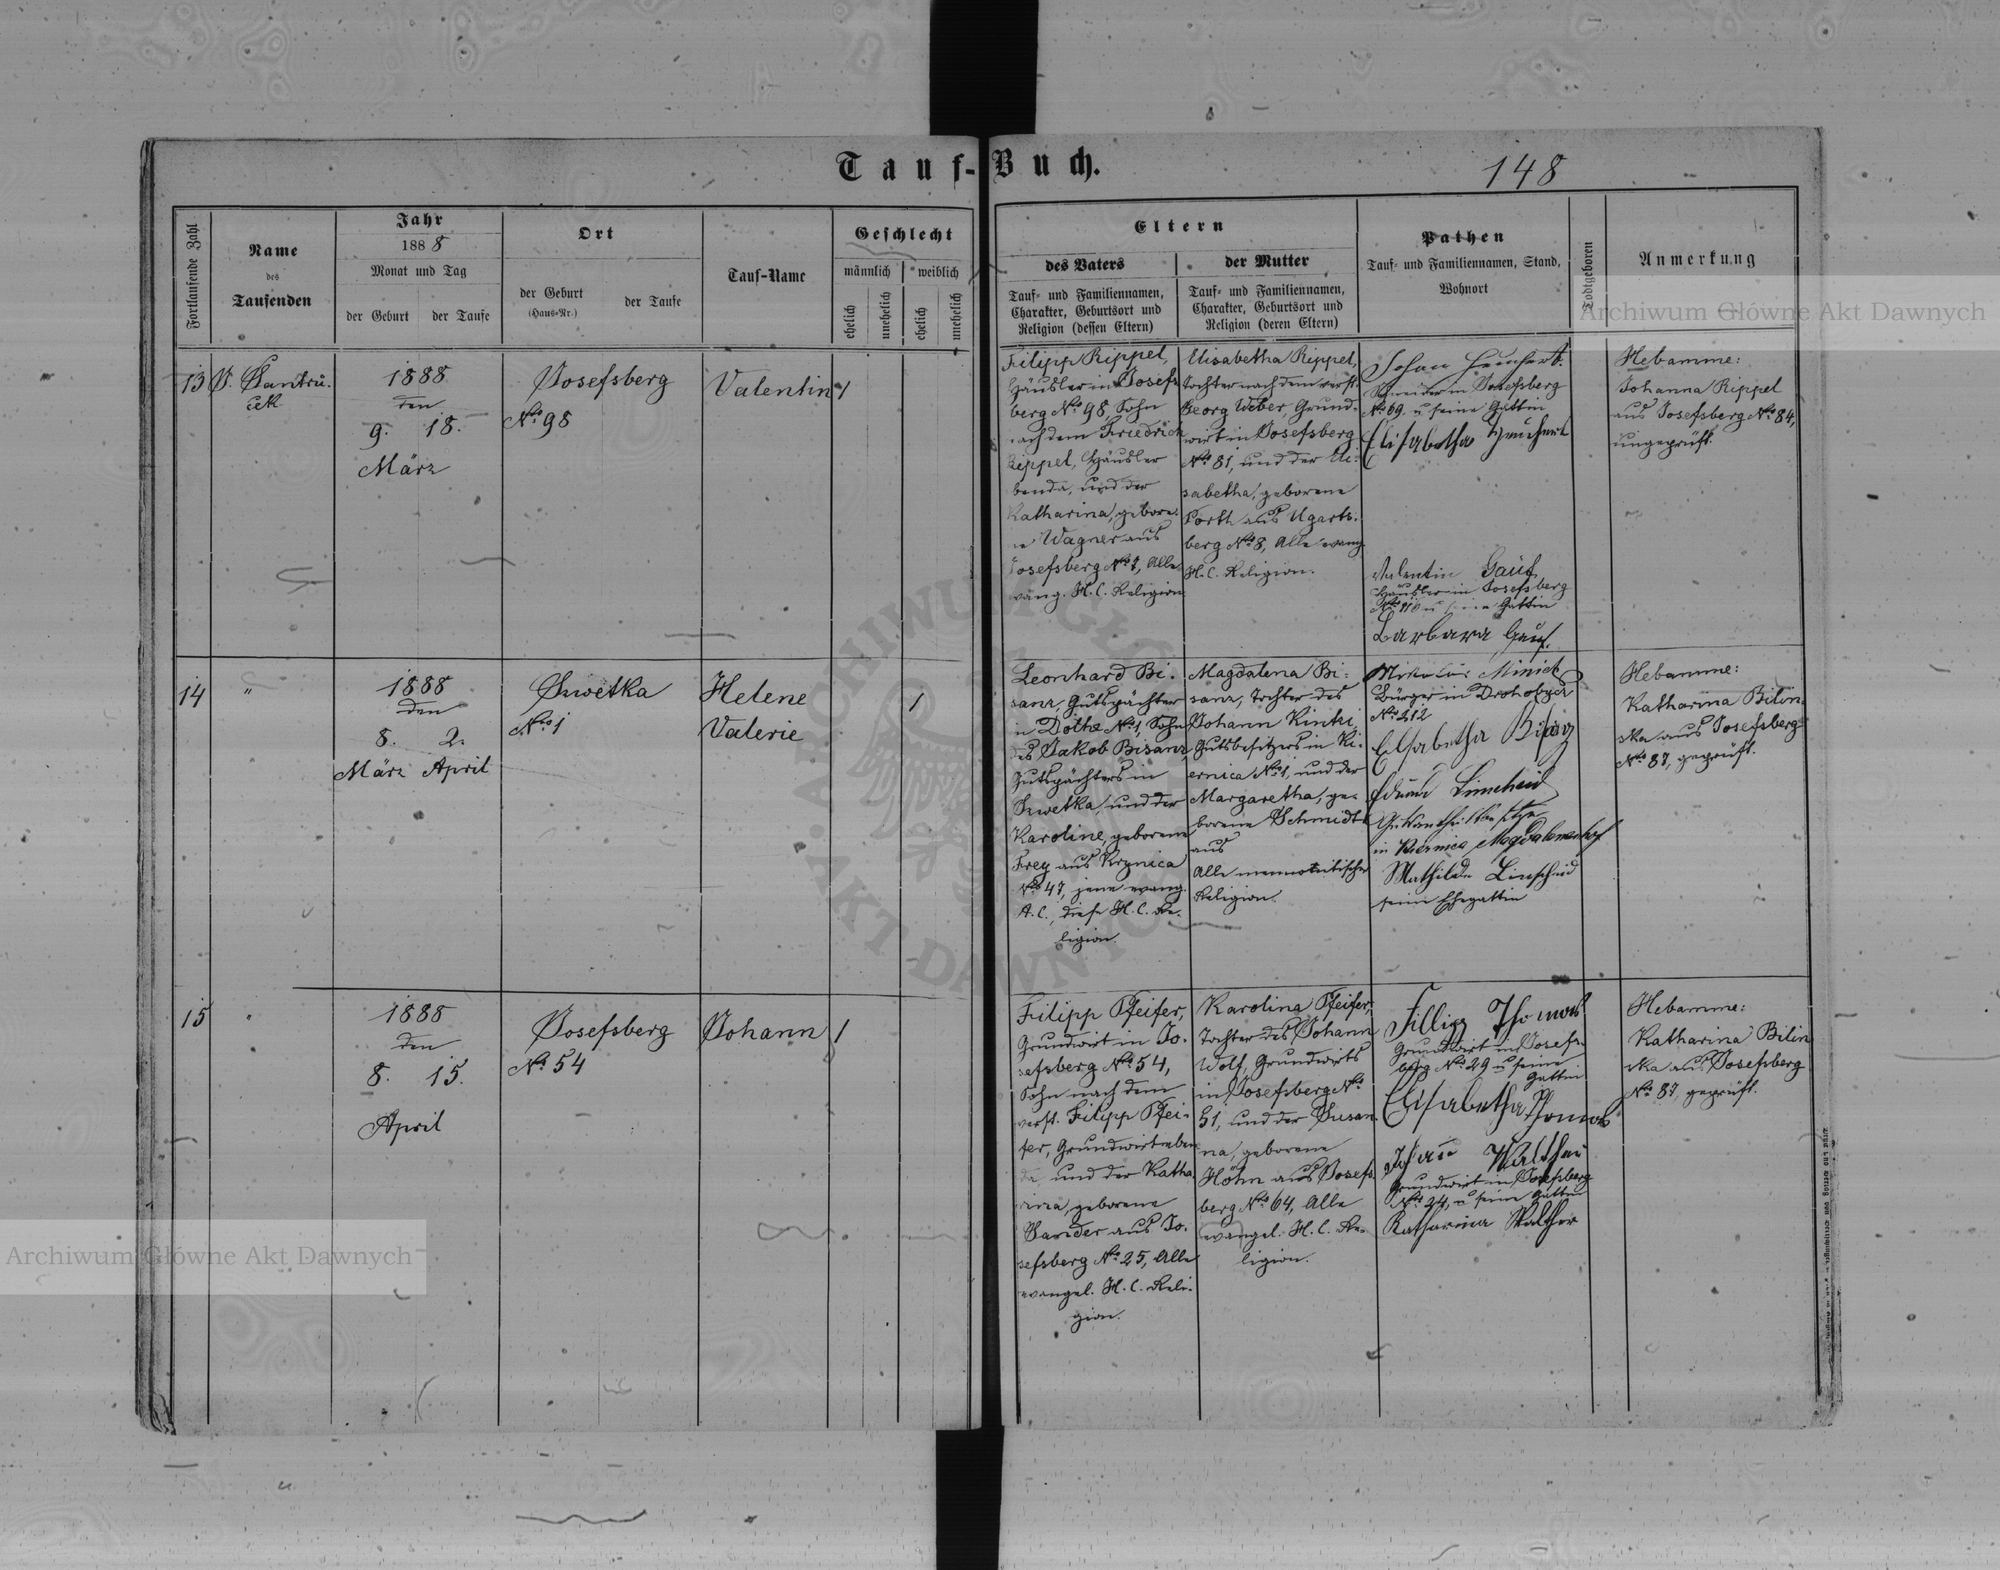 Tauf-Buch.
148
Fortlaufende Zahl
Name
des
Taufenden
Jahr
1888
Monat und Tag
der Geburt
der Taufe
Ort
der Geburt
(Haus-Nr.)
der Taufe
Tauf-Name
Geschlecht
männlich
weiblich
ehelich
unehelich
ehelich
unehelich
Eltern
des Vaters
Tauf- und Familiennamen,
Charakter, Geburtsort und
Religion (dessen Eltern)
der Mutter
Tauf- und Familiennamen,
Charakter, Geburtsort und
Religion (deren Eltern)
Pathen
Tauf- und Familiennamen, Stand,
Wohnort
Todtgeboren
Anmerkung
13
1888
den
9. 18.
März
Josefsberg
No 98
Valentin
1
Filipp Rippel,
Häusler in Josefs
berg No 98, Sohn
nach dem Friedrich
Rippel, Häusler
benda, und der
Katharina, gebore
ne Wagner aus
Josefsberg No 1, Alle
evang. H. C. Religion
Elisabetha Rippel,
Tochter nach dem verst.
Georg Weber, Grund-
wirt in Josefsberg
No 81, und der Eli-
sabetha, geborene
Forth aus Ugarts-
berg No 8, Alle evang
H. C. Religion.
Johan
Schneider in Josefsberg
No 69. u seine Gattin
Elisabetha
Valentin Gauf
Häusler in Josefsberg
u seine Gattin
Barbara Gauf.
Hebamme:
Johanna Rippel
aus Josefsberg No 84,
ungeprüft.
14
"
1888
den
8. 2.
März April
Smetka
No 1
Helene
Valerie
1
Leonhard Bi-
sanz, Gutspächter
in Dolhe No 1, Sohn
des Jakob Bisanz,
Gutspächters in
Smetka, und der
Karoline, geborene
Frey aus Krynica
No 47, jene evang.
A. C., diese H. C. Re-
ligion.
Magdalena Bi-
sanz, Tochter des
Johann Kintzi
Gutsbesitzers in Ki-
ernica No 1, und der
Margaretha, ge-
borene Schmidt
aus
Alle mennonitischer
Religion.
Minich
Bürger in Drohobycz
No 212
Elisabetha Bisanz
Eduard Linscheid
in Kiernica Magdalenenhof
Mathilde Linscheid
seine Ehegattin
Hebamme:
Katharina Bilin-
ska aus Josefsberg
No 87, geprüft.
15
"
1888
den
8. 15.
April
Josefsberg
No 54
Johann
1
Filipp Pfeifer,
Grundwirt in Jo-
sefsberg No 54,
Sohn nach dem
verst. Filipp Pfei-
fer, Grundwirt eben
da, und der Katha
rina, geborene
Sander aus Jo-
sefsberg No 25, Alle
evangel. H. C. Reli-
gion.
Karolina Pfeifer,
Tochter des Johann
Wolf, Grundwirts
in Josefsberg No
51, und der Susan
na, geborene
Höhn aus Josefs
berg No 64, Alle
evangel. H. C. Re-
ligion.
Fillipp Thomas
Grundwirt in Josefs-
berg No 29 u seine
Gattin
Elisabetha Thomas
Walther
Grundwirt in Josefsberg
No 24, u seine Gattin
Katharina Walther
Hebamme:
Katharina Bilin
ska aus Josefsberg
No 87, geprüft.
Archiwum Główne Akt Dawnych
Archiwum Główne Akt Dawnych